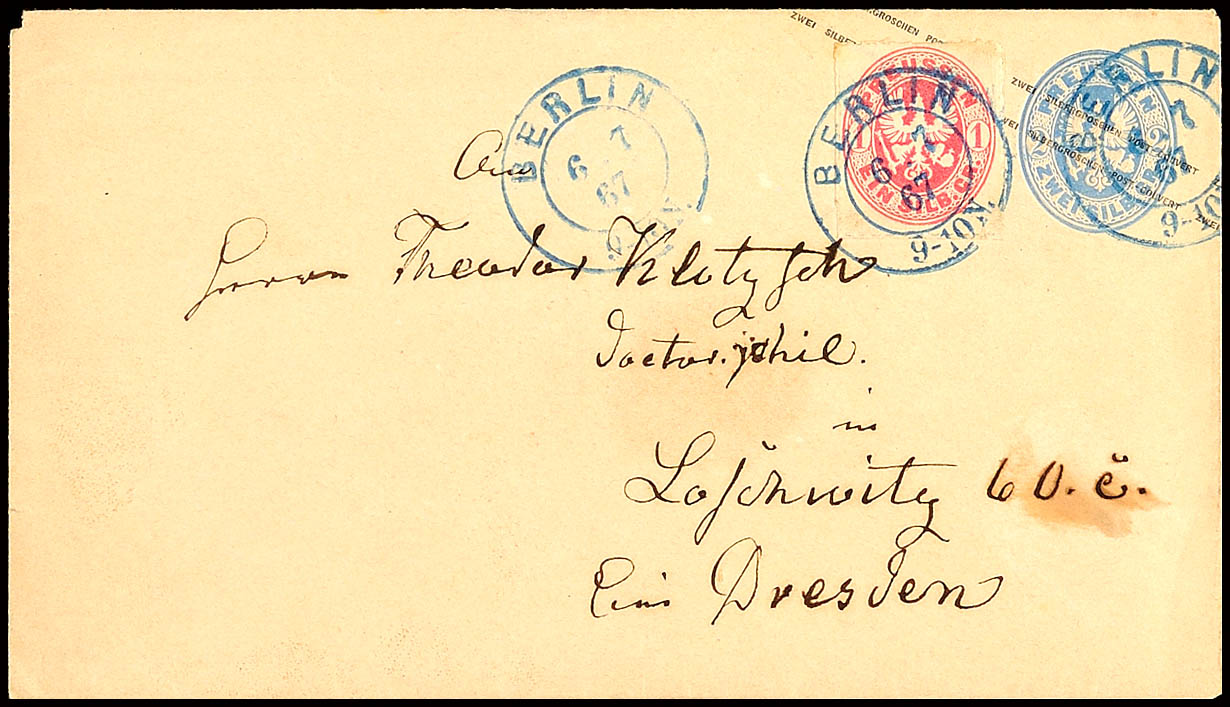 ZWEI SILBERGROSCHEN POST
PREUSSEN
1 1
EIN SILB.GR.
PREUSSEN
2 2
ZWEI SILB.GR.
ZWEI SILBERGROSCHEN POST-COUVERT
ZWEI SILBERGROSCHEN POST-COUVERT ZWEI
BERLIN
6 7
67
9-10N.
BERLIN
6 7
67
9-10N.
BERLIN
6 7
67
9-10
An
Herrn Theodor Klotzsch
Doctor. phil.
in
Loschwitz 60. c.
Dresden